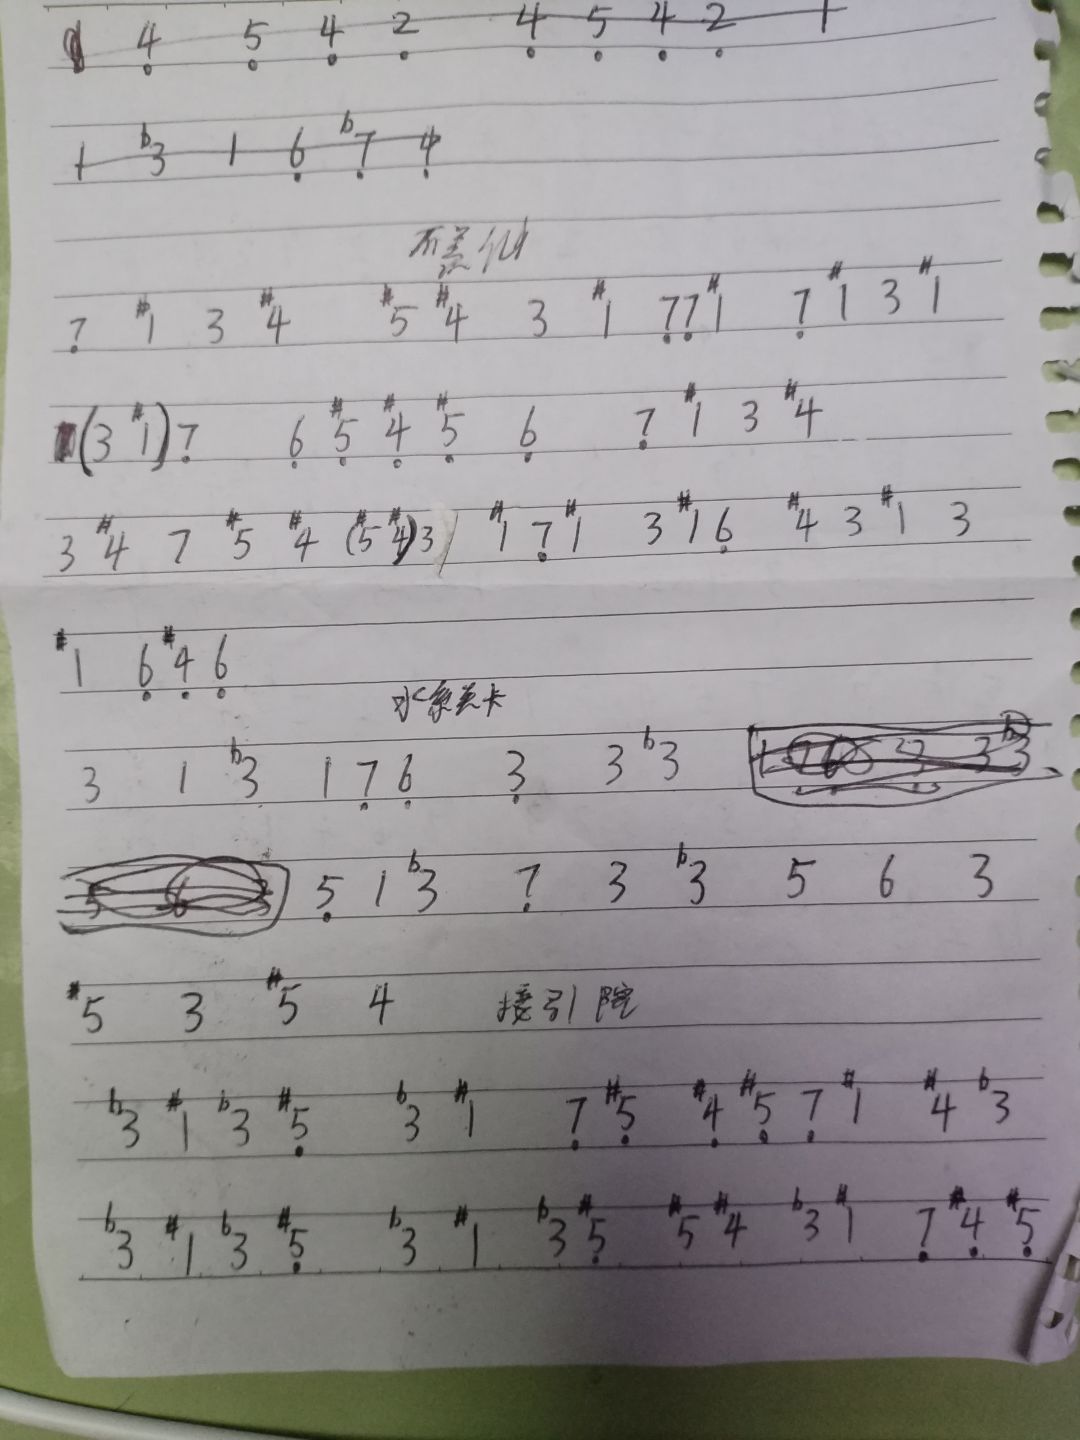 4 5 4 2 4 5 4 2 1
1 b3 1 6 b7 4
不羡仙
7 #1 3 #4 #5 #4 3 #1 77#1 7 #1 3 #1
(3 #1)7 6 #5 #4 #5 6 7 #1 3 #4
3 #4 7 #5 #4 (#5 #4)3 #1 7 #1 3 #1 6 #4 3 #1 3
#1 6 #4 6
水系关卡
3 1 b3 1 7 6 3 3 b3
5 1 b3 7 3 b3 5 6 3
#5 3 #5 4 接引院
b3 #1 b3 #5 b3 #1 7 #5 #4 #5 7 #1 #4 b3
b3 #1 b3 #5 b3 #1 b3 #5 #5 #4 b3 #1 7 #4 #5